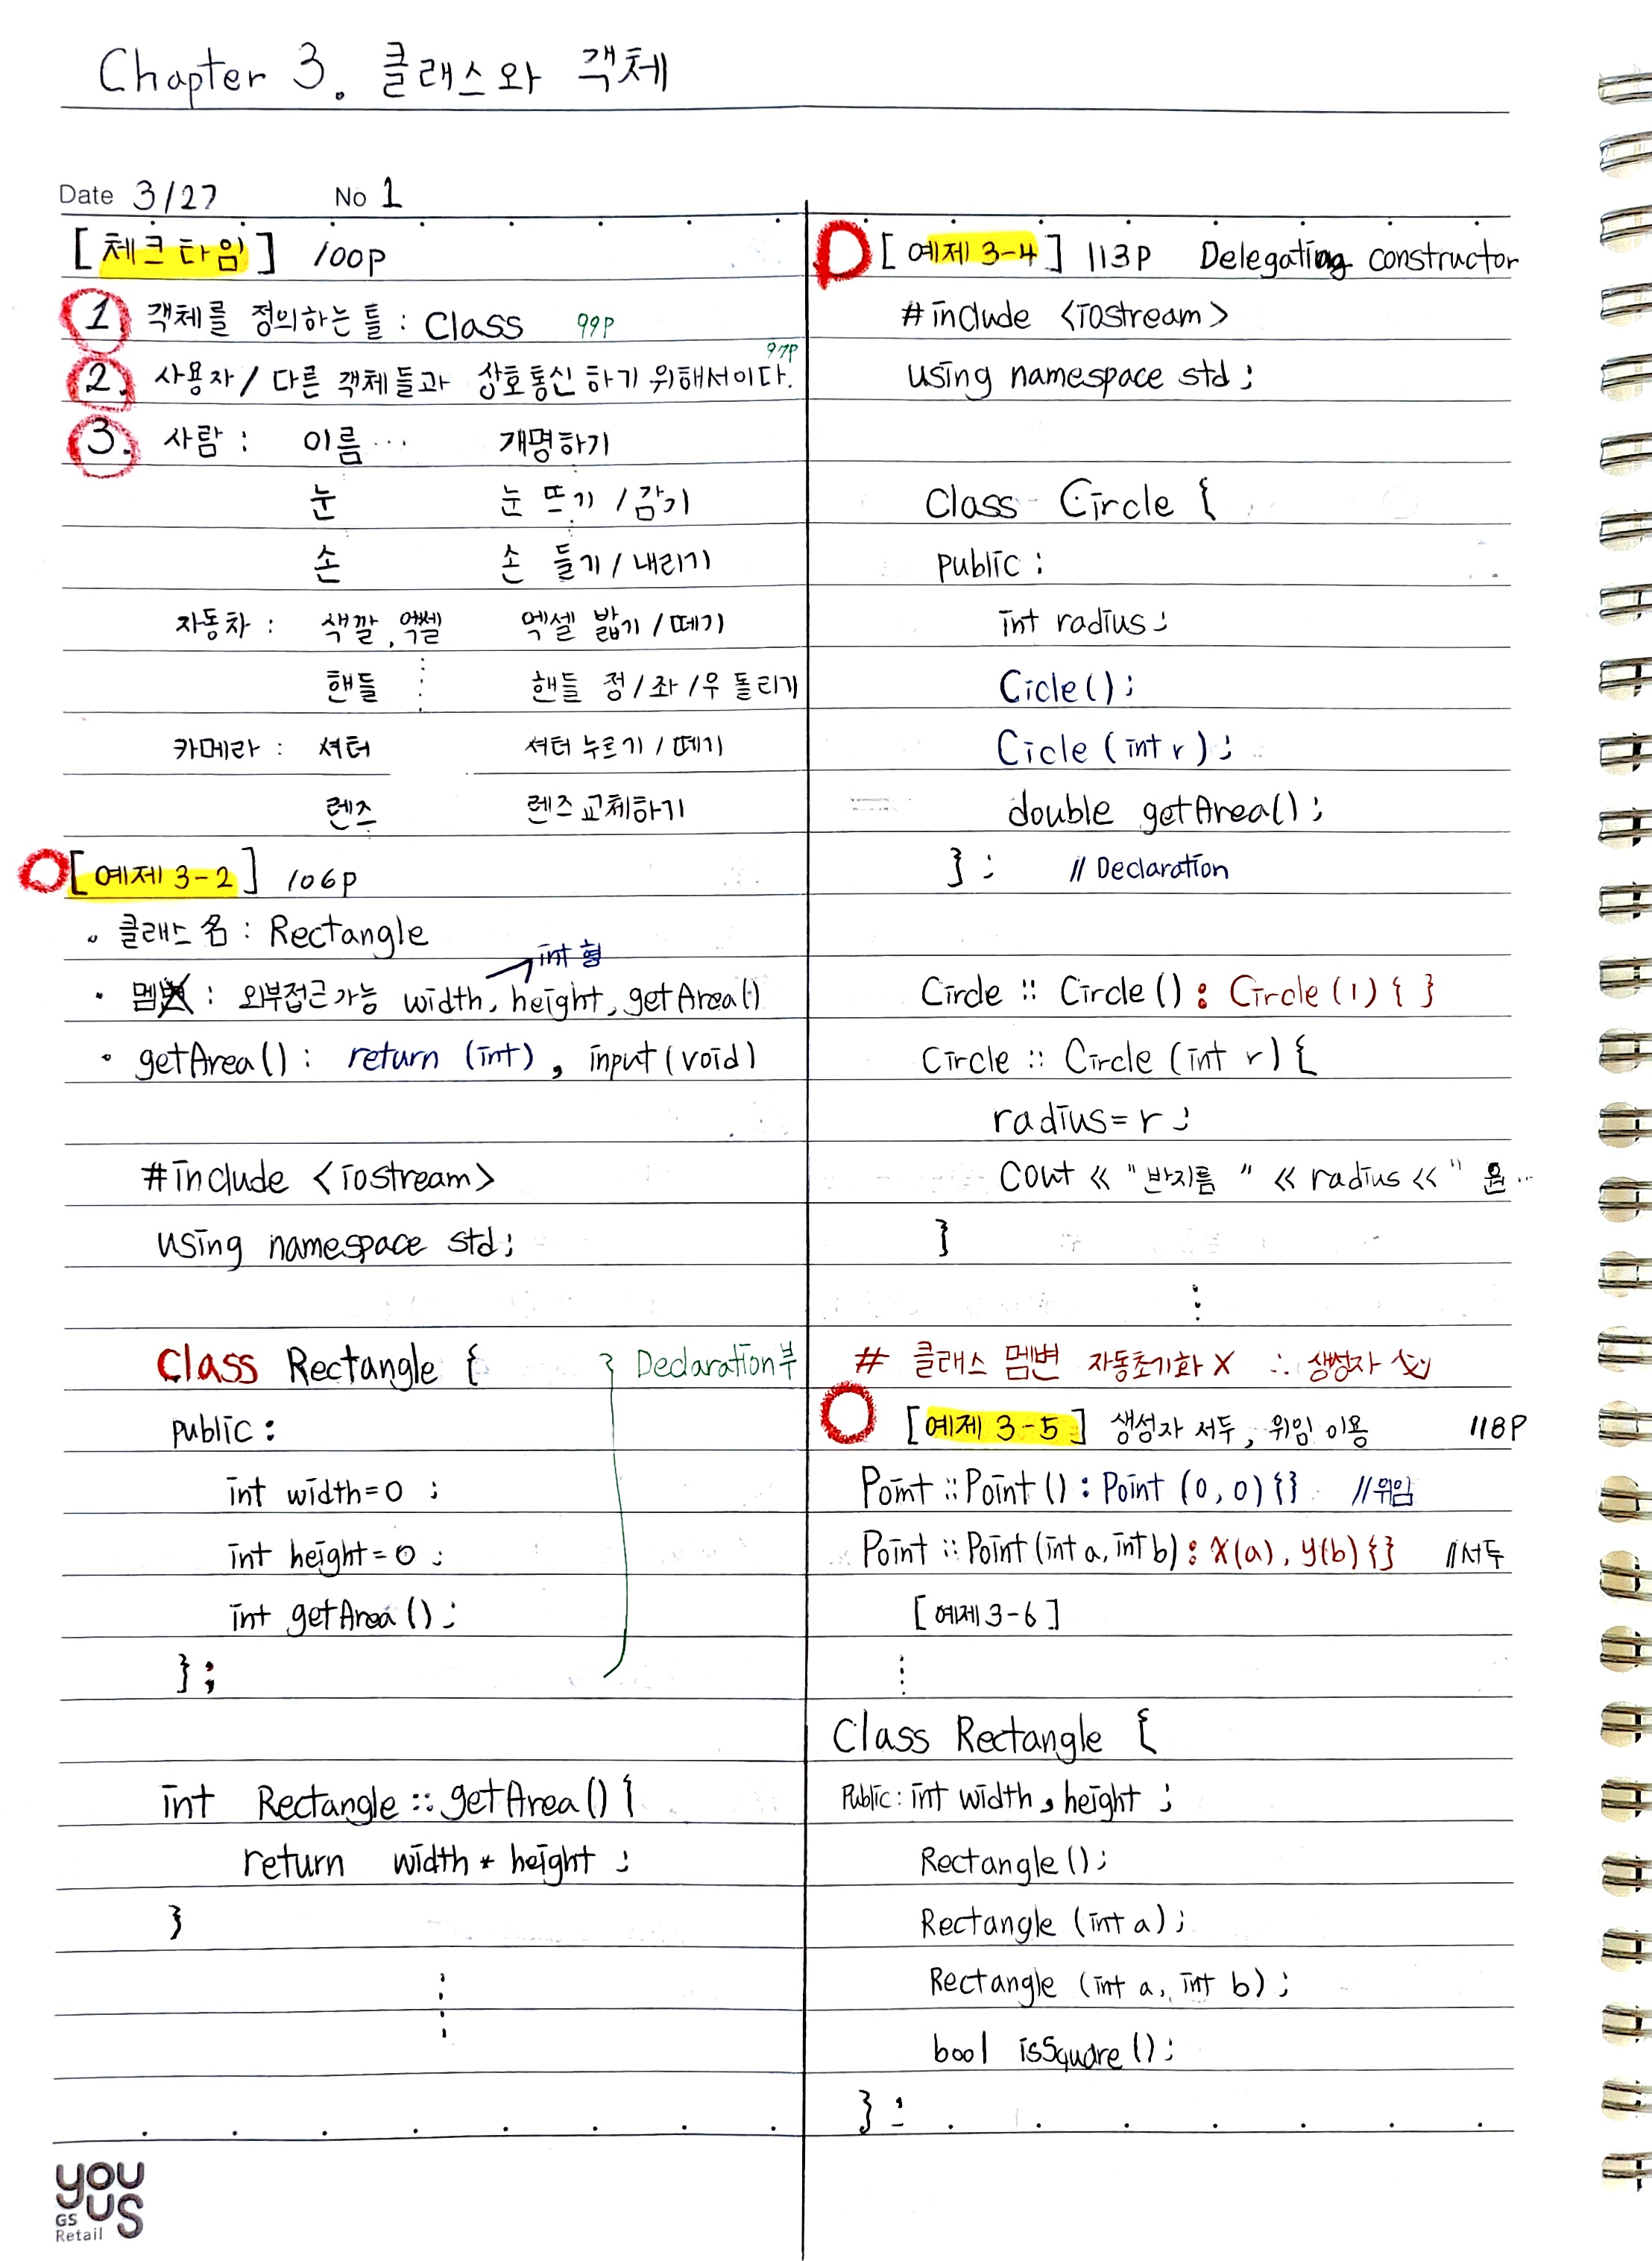 Chapter 3. 클래스와 객체
Date 3/27 No 1
[체크 타임] 100p
1. 객체를 정의하는 틀 : Class 99p
97p
2. 사용자 / 다른 객체들과 상호통신 하기 위해서이다.
3. 사람 : 이름 ... 개명하기
눈 눈 뜨기 / 감기
손 손 들기 / 내리기
자동차 : 색깔, 엑셀 엑셀 밟기 / 떼기
핸들 핸들 정 / 좌 / 우 돌리기
카메라 : 셔터 셔터 누르기 / 떼기
렌즈 렌즈 교체하기
[예제 3-2] 106p
• 클래스 名 : Rectangle
int 형
• 멤변 : 외부접근 가능 width, height, getArea()
• getArea() : return (int), input (void)
#include <iostream>
using namespace std;
Class Rectangle { Declaration 부
public :
int width=0 ;
int height=0 ;
int getArea();
};
int Rectangle :: getArea() {
return width * height ;
}
[예제 3-4] 113p Delegating constructor
#include <iostream>
using namespace std ;
Class Circle {
public :
int radius ;
Cicle();
Cicle (int r) ;
double getArea();
}; // Declaration
Circle :: Circle() : Circle (1) { }
Circle :: Circle (int r) {
radius = r ;
Cout << "반지름 " << radius << " 원...
}
# 클래스 멤변 자동초기화 X ∴ 생성자
[예제 3-5] 생성자 서두, 위임 이용 118p
Point :: Point() : Point (0, 0) {} //위임
Point :: Point(int a, int b) : x(a), y(b) {} //서두
[예제 3-6]
Class Rectangle {
Public : int width, height ;
Rectangle();
Rectangle (int a);
Rectangle (int a, int b) ;
bool isSquare();
};
you us
GS
Retail